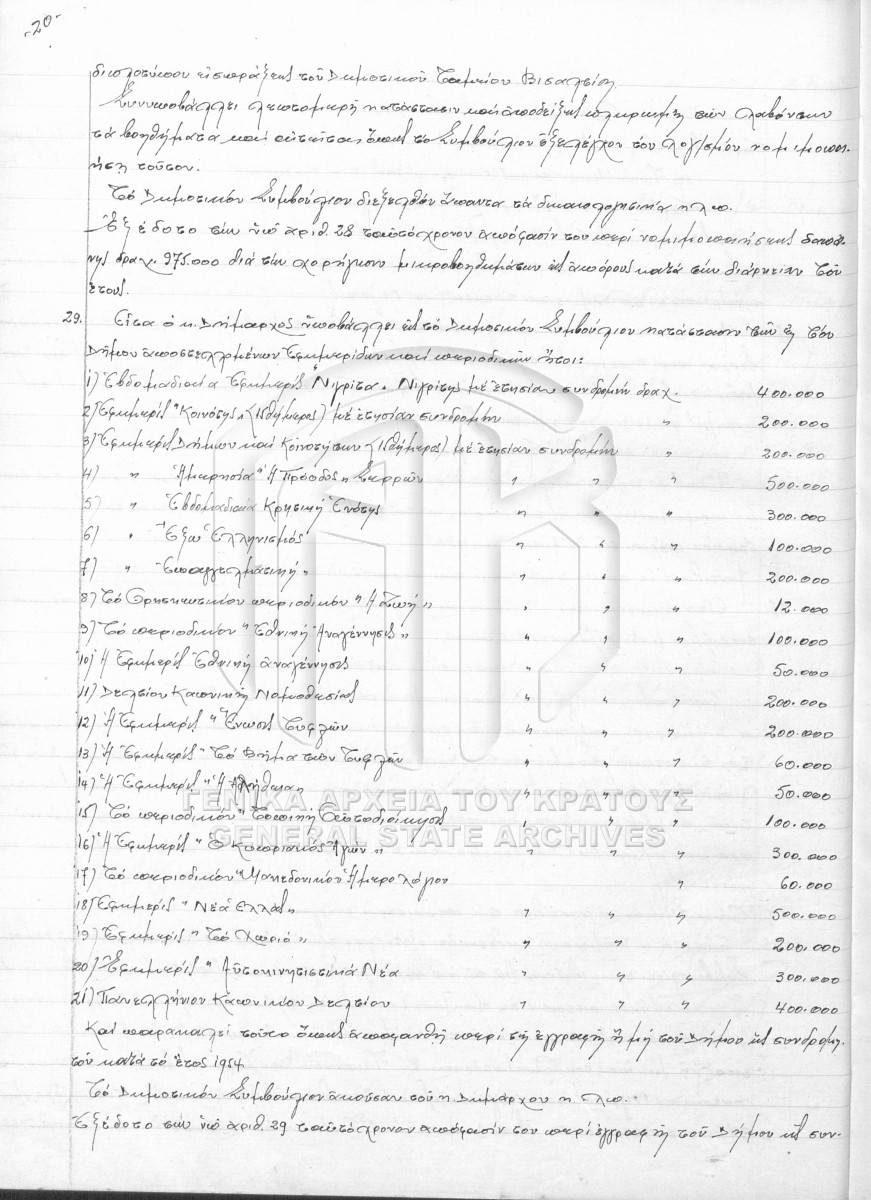 -20-
διπλοτύπου εἰσπράξεως τοῦ Δημοτικοῦ Ταμείου Βισαλτίας
Συνυποβάλλει λεπτομερῆ κατάστασιν καί ἀποδείξεις πληρωμῆς τῶν λαβόντων
τά βοηθήματα καί αἰτεῖται ὅπως τό Συμβούλιον ἐξελέγχον τόν λογ/σμόν νομιμοποι-
ήσῃ τοῦτον.
Τό Δημοτικόν Συμβούλιον διεξελθόν ἅπαντα τά δικαιολογητικά κ.λ.π.
Ἐξέδοτο τήν ὑπ' ἀριθ. 28 ταυτόχρονον ἀπόφασίν του περί νομιμοποιήσεως δαπά-
νης δραχ. 975.000 διά τήν χορήγησιν μικροβοηθημάτων εἰς ἀπόρους κατά τήν διάρκειαν τοῦ
ἔτους.
29. Εἶτα ὁ κ. Δήμαρχος ὑποβάλλει εἰς τό Δημοτικόν Συμβούλιον κατάστασιν τῶν εἰς τόν
Δῆμον ἀποστελλομένων Ἐφημερίδων καί περιοδικῶν ἤτοι:
1) Ἑβδομαδιαία Ἐφημερίς "Νιγρίτα" Νιγρίτης μέ ἐτησίαν συνδρομήν δραχ. 400.000
2) Ἐφημερίς "Κοινότης" (15θήμερος) μέ ἐτησίαν συνδρομήν " 200.000
3) Ἐφημερίς Δήμων καί Κοινοτήτων (15θήμερος) μέ ἐτησίαν συνδρομήν " 200.000
4) " Ἡμερησία "Ἡ Πρόοδος" Σερρῶν " " " 500.000
5) " Ἑβδομαδιαία Κρητική Ἑνότης " " " 300.000
6) " "Ἔξω Ἑλληνισμός" " " " 100.000
7) " Ἐπαγγελματική " " " " 200.000
8) Τό Θρησκευτικόν περιοδικόν "Ἡ Ζωή" " " " 12.000
9) Τό περιοδικόν "Ἐθνική Ἀναγέννησις" " " " 100.000
10) Ἡ Ἐφημερίς Ἐθνική ἀναγέννησις " " " 50.000
11) Δελτίον Καπνικῆς Νομοθεσίας " " " 200.000
12) Ἡ Ἐφημερίς "Ἕνωσις Τυφλῶν " " " 200.000
13) Ἡ Ἐφημερίς "Τό Βῆμα τῶν Τυφλῶν " " " 60.000
14) Ἡ Ἐφημερίς "Ἡ Ἀλήθεια" " " " 50.000
15) Τό περιοδικόν "Τοπική Αὐτοδιοίκησις " " " 100.000
16) Ἡ Ἐφημερίς "Ὁ Κυπριακός Ἀγών" " " " 300.000
17) Τό περιοδικόν "Μακεδονικόν Ἡμερολόγιον " 60.000
18) Ἐφημερίς "Νέα Ἑλλάς" " " " 500.000
19) Ἐφημερίς "Τό Χωριό" " " " 200.000
20) Ἐφημερίς "Αὐτοκινητιστικά Νέα " " " 300.000
21) Πανελλήνιον Καπνικόν Δελτίον " " " 400.000
Καί παρακαλεῖ τοῦτο ὅπως ἀποφανθῇ περί τῆς ἐγγραφῆς ἤ μή τοῦ Δήμου εἰς συνδρομη-
τήν κατά τό ἔτος 1954
Τό Δημοτικόν Συμβούλιον ἀκοῦσαν τοῦ κ. Δημάρχου κ.λ.π.
Ἐξέδοτο τήν ὑπ' ἀριθ. 29 ταυτόχρονον ἀπόφασίν του περί ἐγγραφῆς τοῦ Δήμου εἰς συν-
ΓΕΝΙΚΑ ΑΡΧΕΙΑ ΤΟΥ ΚΡΑΤΟΥΣ
GENERAL STATE ARCHIVES